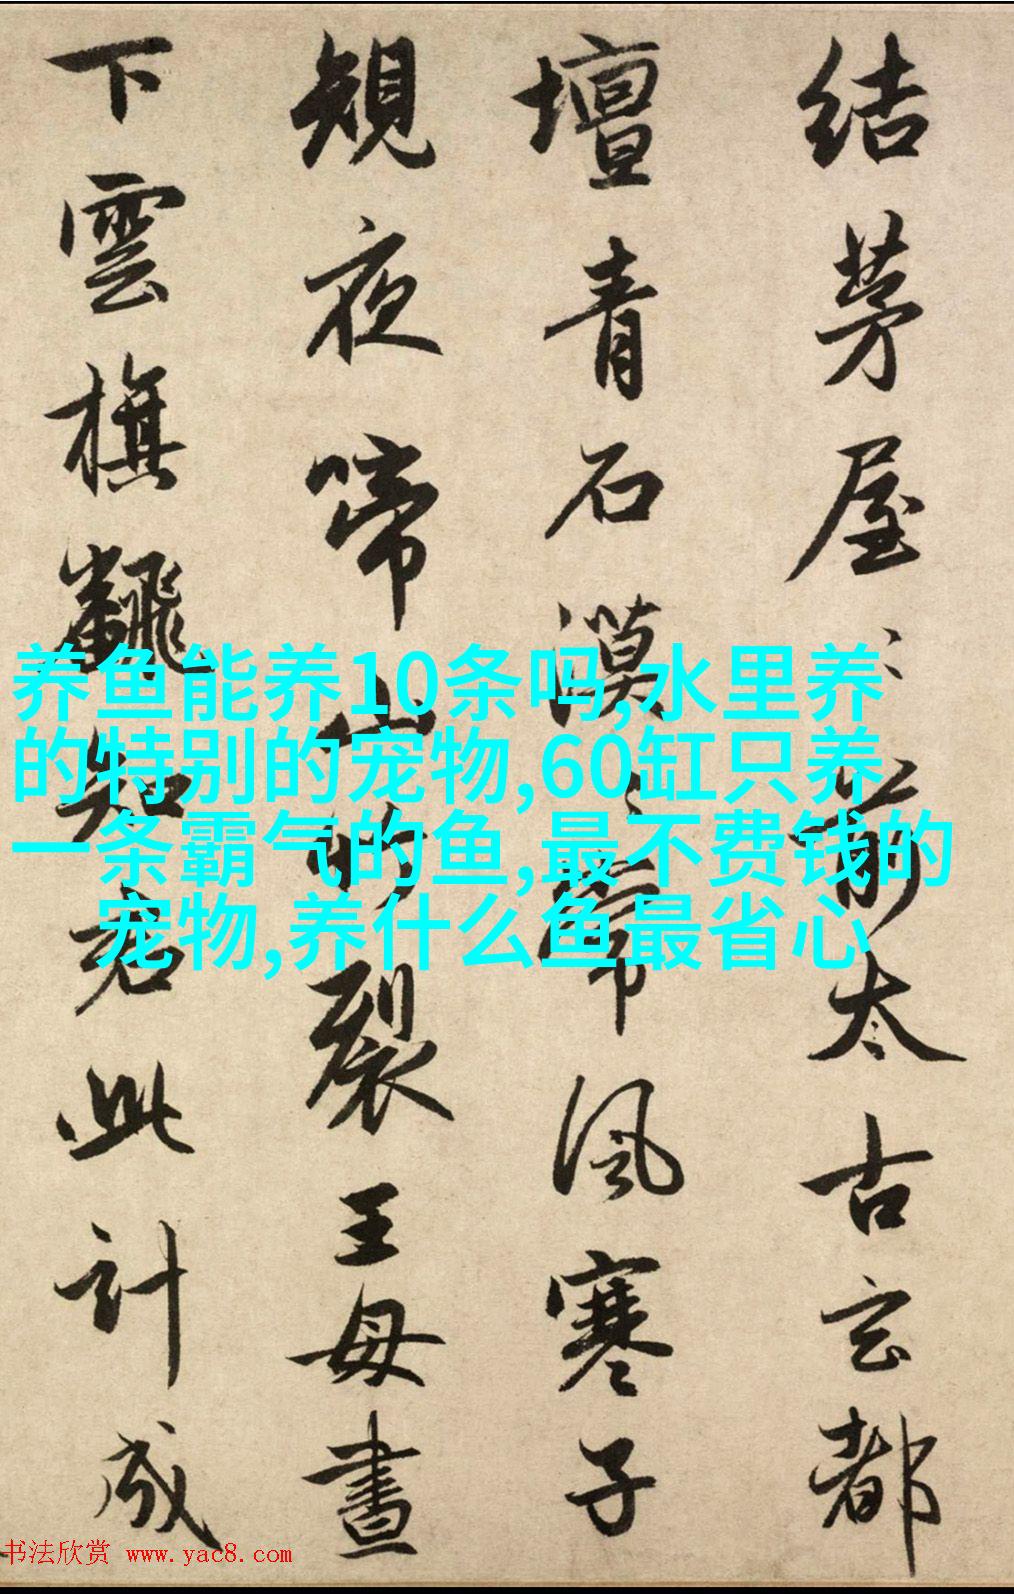 结茅屋〻前太古玄都
壇青石漠〻常風寒子
規夜啼山竹裂王母晝
下雲旗飜知君此計成
养鱼能养10条吗,水里养
的特别的宠物,60缸只养
一条霸气的鱼,最不费钱的
宠物,养什么鱼最省心
书法欣赏 www.yac8.com